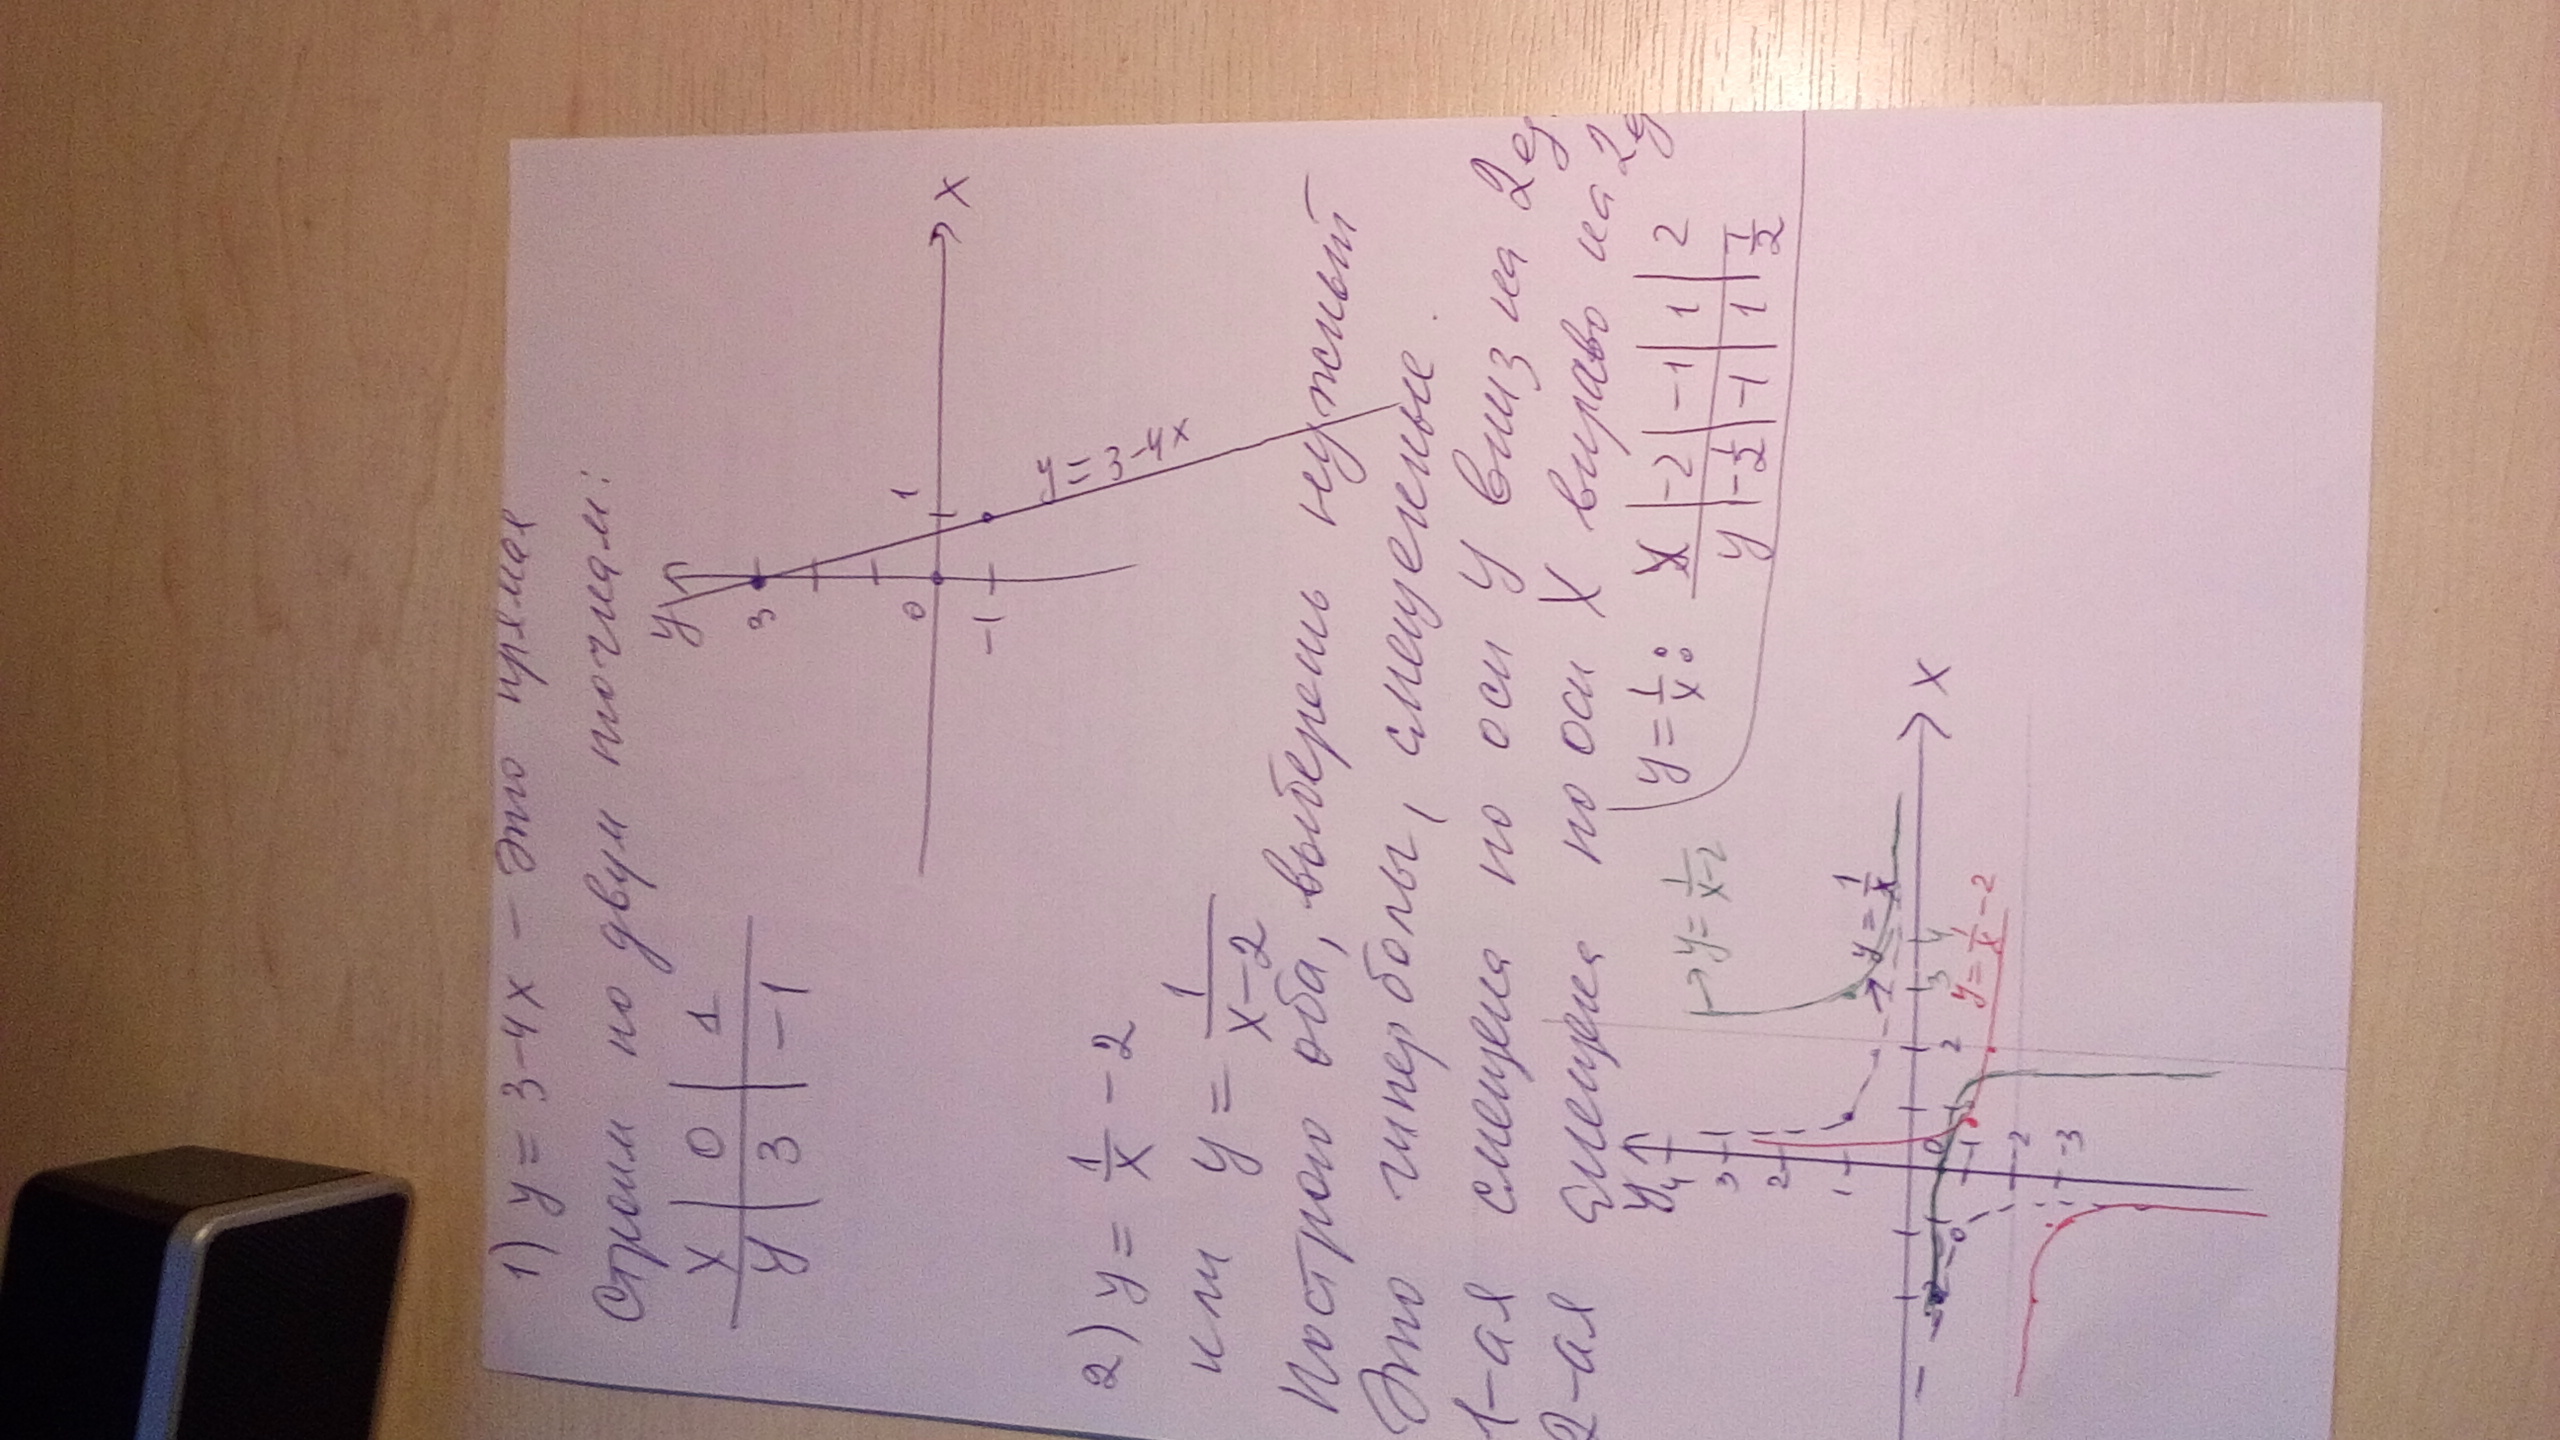 1) y = 3-4x - это прямая
Строим по двум точкам:
x | 0 | 1
y | 3 | -1
y
3
0
1
-1
x
y = 3-4x
2) y = 1/x - 2
или y = 1/(x-2)
Построю оба, выберешь нужный
Это гиперболы, смещенные.
1-ая смещена по оси y вниз на 2 ед
2-ая смещена по оси X вправо на 2 ед
y = 1/x: x | -2 | -1 | 1 | 2
y | -1/2 | -1 | 1 | 1/2
y = 1/(x-2)
y
4
3
2
1
0
-1
-2
-3
2
3
4
x
y = 1/x
y = 1/x - 2